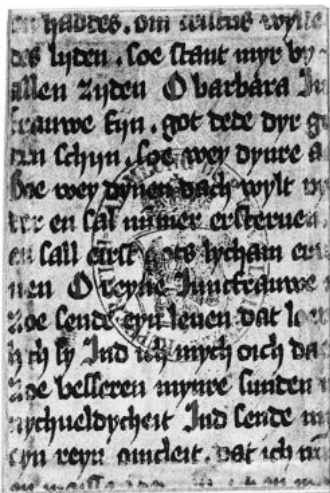 des lyden. soe stant myr by
allen zyden O barbara Ju
frauwe fyn. got dede dyr g
ten schyn. soe wey dynre a
soe wey dynen dach wylt
ter en sal nummer ersteruen
en sall eirst gots lycham er
uen O reyne Junefrauwe
zoe sende eyn leuen dat lo
lych sy Ind ich mych oich da
zoe besseren mynre sunden
nychueldycheit Ind sende m
eyn reyn amcleit. dat ich